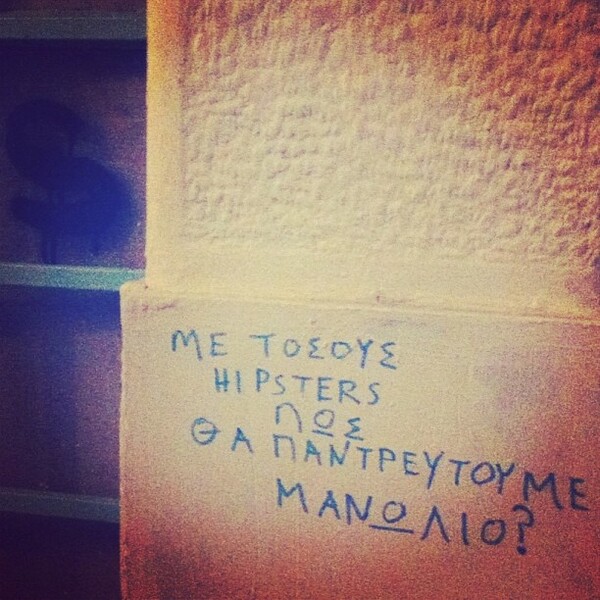 ΜΕ ΤΟΣΟΥΣ
HIPSTERS
ΠΩΣ
ΘΑ ΠΑΝΤΡΕΥΤΟΥΜΕ
ΜΑΝΩΛΙΟ?